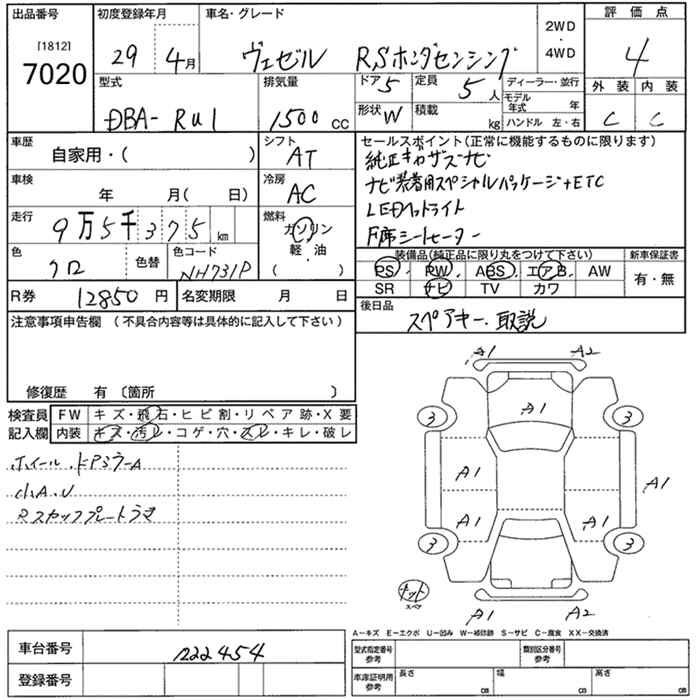 出品番号 初度登録年月 車名・グレード 2WD・4WD 評価点
[1812]
7020 29 4月 ヴェゼル RSホンダセンシング 4
型式 排気量 ドア 5 定員 5人 ディーラー・並行 外装 内装
DBA-RU1 1500cc 形状 W 積載 kg モデル年式 年 C C
ハンドル 左・右
車歴 シフト セールスポイント(正常に機能するものに限ります)
自家用・( ) AT 純正ギャザズナビ
車検 冷房 ナビ装着用スペシャルパッケージ+ETC
年 月( 日) AC LEDヘッドライト
走行 9万5千375km 燃料 ガソリン 軽・油 ( ) F席シートヒーター
色 クロ 色替 色コード NH731P
装備品(純正品に限り丸をつけて下さい) 新車保証書
PS PW ABS エアB AW 有・無
SR ナビ TV カワ
R券 12850円 名変期限 月 日 後日品
スペアキー・取説
注意事項申告欄 (不具合内容等は具体的に記入して下さい)
修復歴 有 〔箇所 〕
検査員 FW キズ・飛石・ヒビ割・リペア跡・X要
記入欄 内装 キズ・汚レ・コゲ・穴・スレ・キレ・破レ
ホイール・ドアミラーA
小A.U
Rスカッフプレートウキ
A1 A2
3 A1 3
A1 A1
A1 A1
3 3
ナット
スペア
A1 A2
A-キズ E-エクボ U-凹み W-補修跡 S-サビ C-腐食 XX-交換済
車台番号 1222454
登録番号
型式指定番号 参考 類別区分番号 参考
車庫証明用 参考 長さ cm 幅 cm 高さ cm